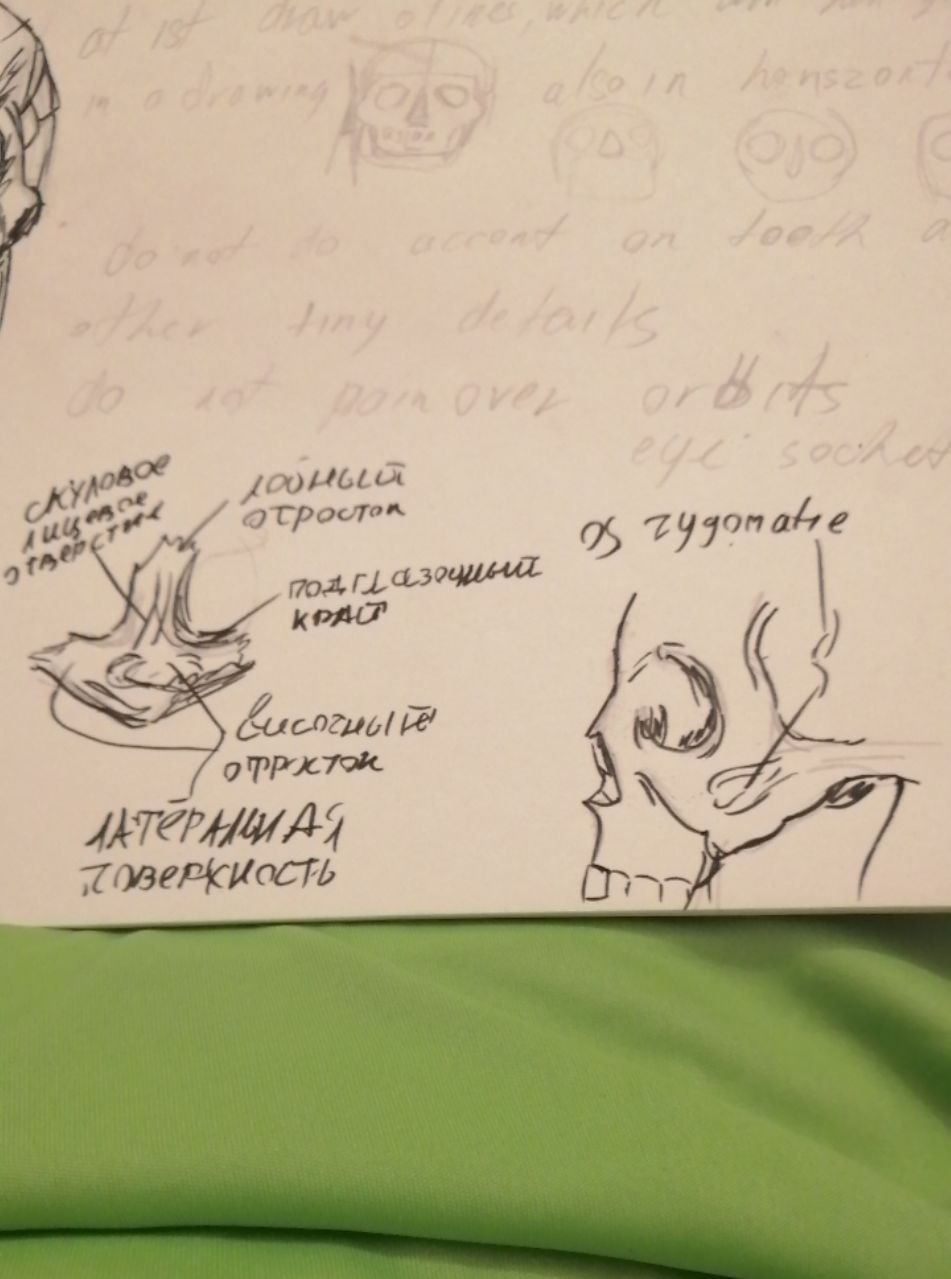 at 1st draw olines, which
in a drawing also in horiszont
do not do accent on tooth a
other tiny details
do not pain over orbits
eye socket
скуловое
лицевое
отверстие
лобный
отросток
подглазочный
край
височный
отросток
латеральная
поверхность
os zygomatie